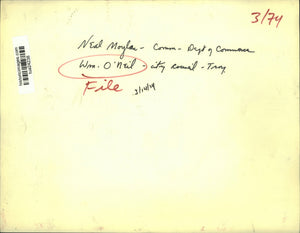 3/74
Neal Moylan - Comm - Dept of Commerce
Wm. O'Neil - city council - Troy
File 3/14/74